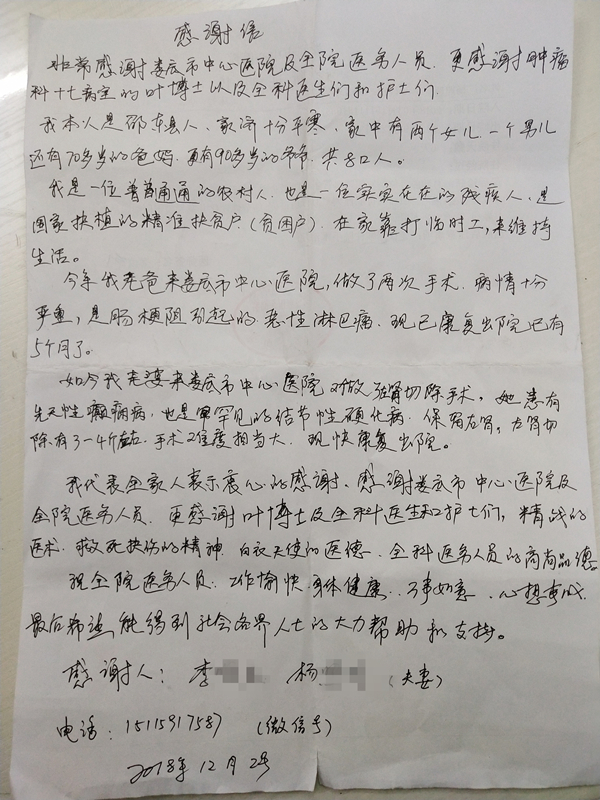 感谢信
非常感谢娄底市中心医院及全院医务人员.更感谢肿瘤
科十七病室的叶博士以及全科医生们和护士们.
我本人是邵东县人、家济十分平寒、家中有两个女儿.一个男儿
还有70多岁的爸妈.更有90多岁的爷爷.共8口人。
我是一位普普通通的农村人.也是一位实实在在的残疾人.是
国家扶植的精准扶贫户(贫困户).在家靠打临时工,来维持
生活。
今年我老爸来娄底市中心医院,做了两次手术.病情十分
严重,是肠梗阻引起的恶性淋巴瘤.现已康复出院已有
5个月了。
如今我老婆来娄底市中心医院对做左肾切除手术,她患有
先天性癫痫病,也是罕见的结节性硬化病.保留右肾,左肾切
除有3-4斤左右.手术难度相当大.现快康复出院。
我代表全家人表示衷心的感谢、感谢娄底市中心医院及
全院医务人员.更感谢叶博士及全科医生和护士们,精战的
医术.救死扶伤的精神.白衣天使的医德.全科医务人员的高尚品德.
祝全院医务人员:工作愉快.身体健康..万事如意.心想事成.
最后希望能得到社会各界人士的大力帮助和支持。
感谢人:李 杨 (夫妻)
电话:15115917587 (微信号)
2018年12月2号